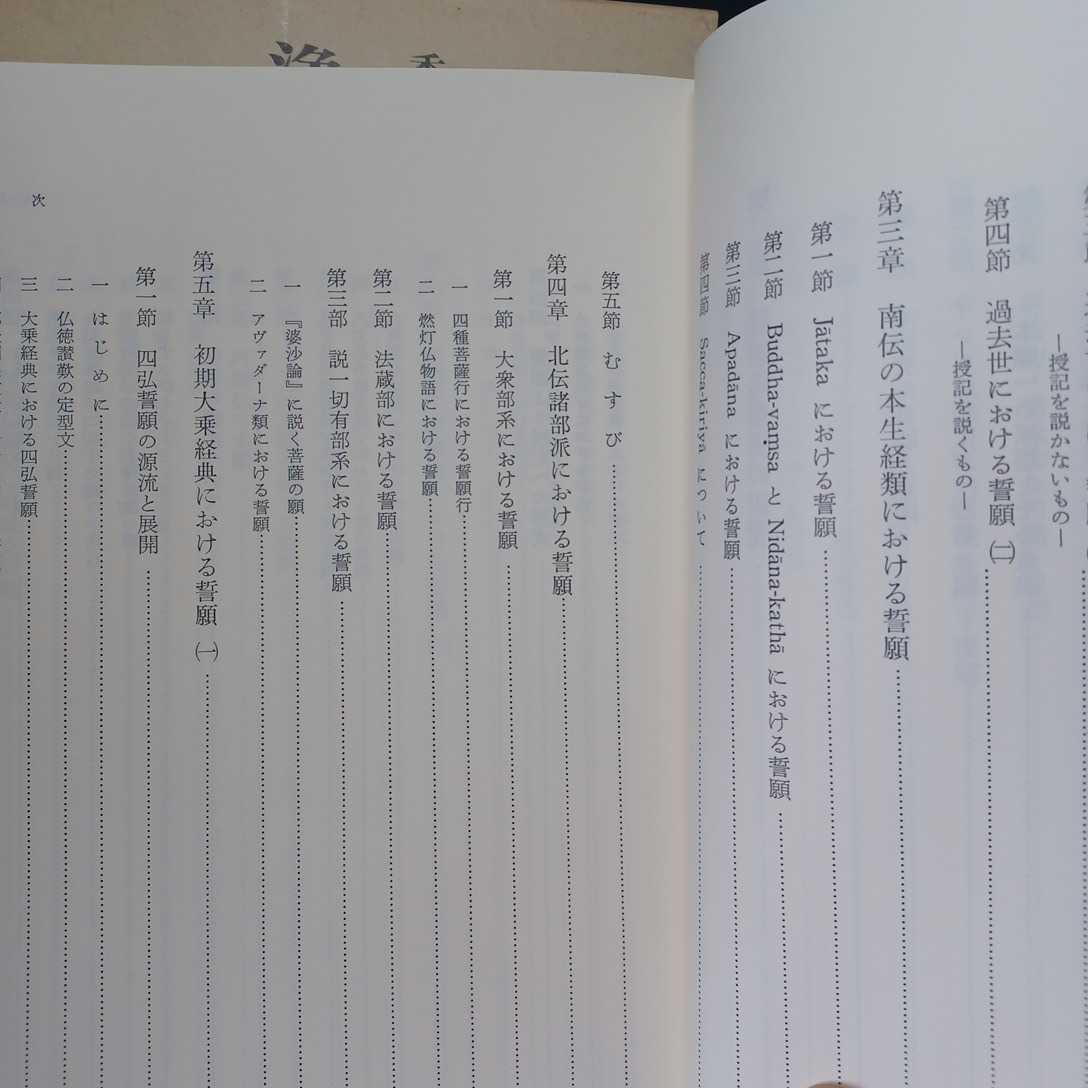 ―授記を説かないもの―
第四節　過去世における誓願 ㈡
―授記を説くもの―
第三章　南伝の本生経類における誓願
第一節　Jātaka における誓願
第二節　Buddha-vaṃsa と Nidāna-kathā における誓願
第三節　Apadāna における誓願
第四節　Sacca-kiriya について
第五節　む す び
第四章　北伝諸部派における誓願
第一節　大衆部系における誓願
一　四種菩薩行における誓願行
二　燃灯仏物語における誓願
第二節　法蔵部における誓願
第三部　説一切有部系における誓願
一　『婆沙論』に説く菩薩の願
二　アヴァダーナ類における誓願
第五章　初期大乗経典における誓願 ㈠
第一節　四弘誓願の源流と展開
一　は じ め に
二　仏徳讃歎の定型文
三　大乗経典における四弘誓願
次
浄